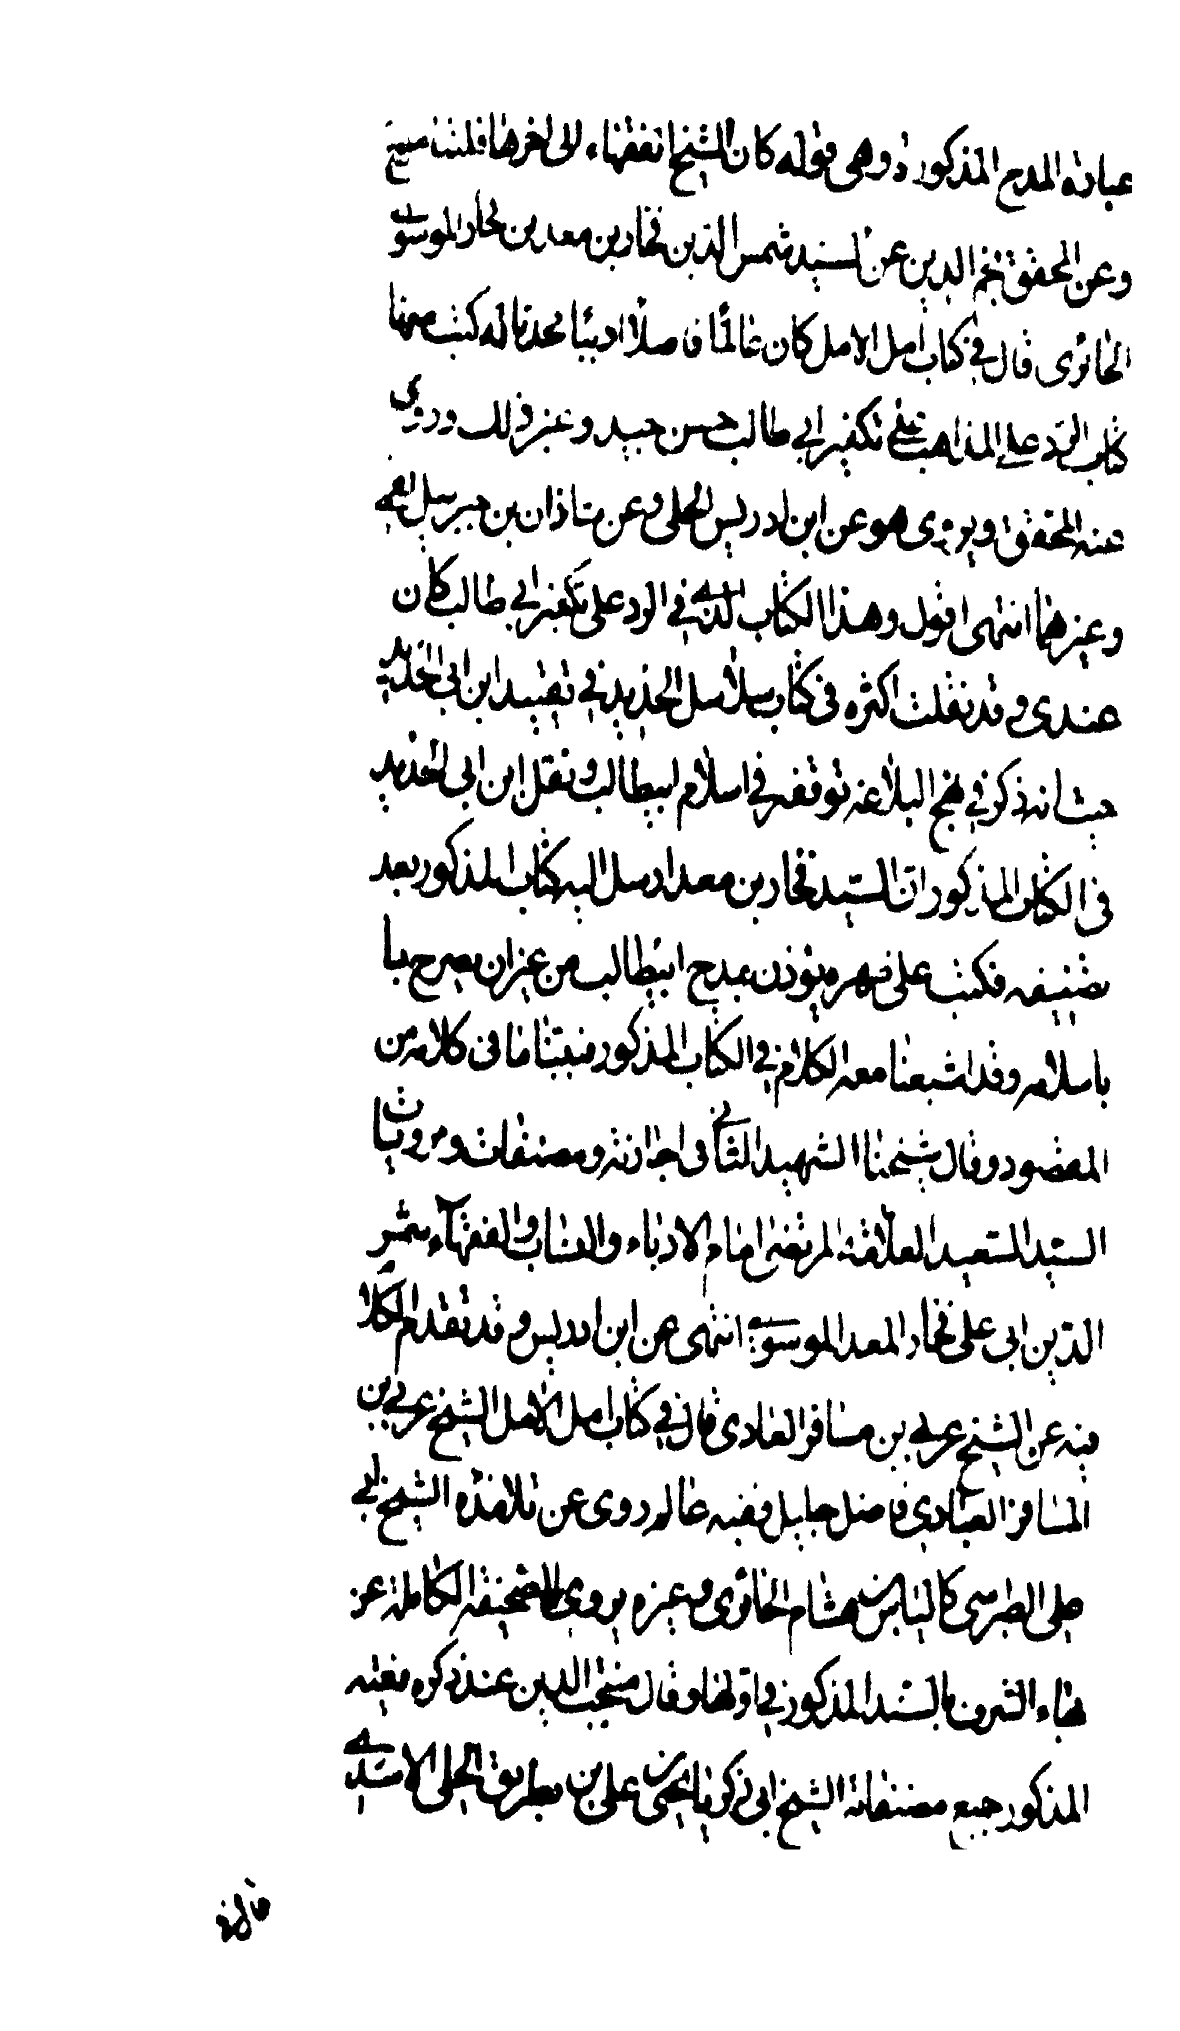 عبارة المدح المذكور وهي قوله كان الشيخ افقهاء الى اخرها قلت
وعن المحقق نجم الدين عن السيد شمس الدين فخار بن معد بن فخار الموسوي
الحائري قال في كتاب امل الامل كان عالما فاضلا اديبا محدثا له كتب منها
كتاب الرد على الذاهب على تكفير ابي طالب حسن جيد وغير ذلك وروى
عنه المحقق ويروى هو عن ابن ادريس الحلي وعن شاذان بن جبرئيل القمي
وغيرهما انتهى اقول وهذا الكتاب الذي في الرد على تكفير ابي طالب كان
عندي وقد نقلت اكثره في كتاب سلاسل الحديد في تقييد ابن ابي الحديد
حيث انه ذكر في نهج البلاغه توقفه في اسلام ابيطالب ونقل ابن ابي الحديد
في الكتاب المذكور ان السيد فخار بن معد ارسل اليه كتاب المذكور بعد
تصنيفه فكتب على ظهره يؤذن بمدح ابيطالب من غير ان يصرح با
باسلامه وقد اشبعنا معه الكلام في الكتاب المذكور مبينا ما في كلامه من
المقصود وقال شيخنا الشهيد الثاني في اجازته ومصنفات ومرويات
السيد السعيد العلامة المرتضى امام الادباء والانساب والفقهاء شمس
الدين ابي علي فخار المعد الموسوي انتهى عن ابن ادريس وقد تقدم الكلام
فيه عن الشيخ عربي بن مسافر العبادي قال في كتاب امل الامل الشيخ عربي بن
المسافر العبادي فاضل جليل فقيه عالم روى عن تلامذه الشيخ ابي
علي الطوسي كالياس بن هشام الحائري وغيره يروي الصحيفة الكاملة عن
بهاء الشرف بالسند المذكور في اولها وقال منتجب الدين عند ذكره فقيه
المذكور جميع مصنفات الشيخ ابي زكريا يحيى بن علي بن بطريق الحلي الاسدي